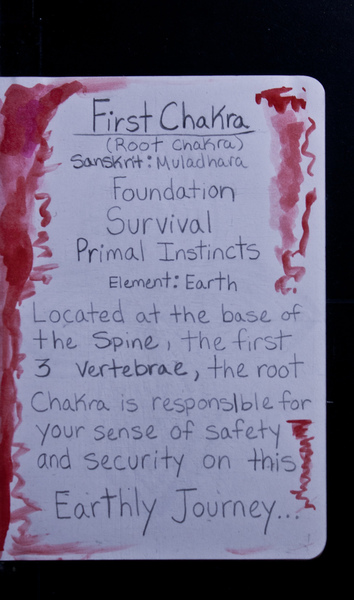 First Chakra
(Root Chakra)
Sanskrit: Muladhara
Foundation
Survival
Primal Instincts
Element: Earth
Located at the base of
the Spine, the first
3 vertebrae, the root
Chakra is responsible for
your sense of safety
and security on this
Earthly Journey...